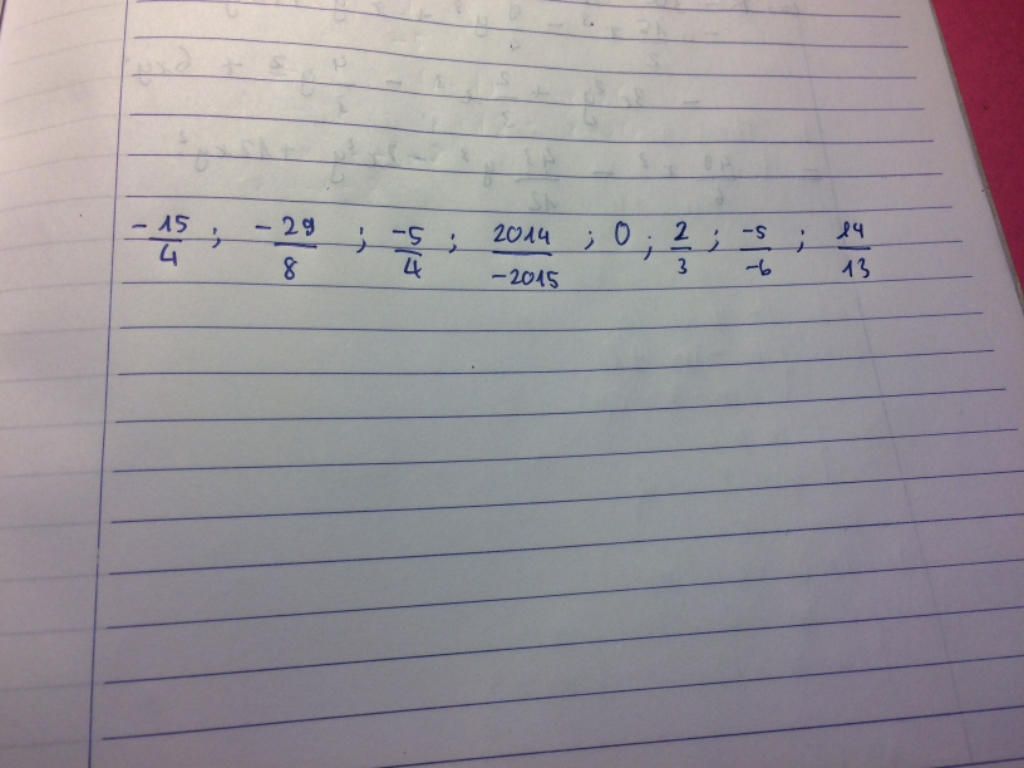 -15/4 ; -29/8 ; -5/4 ; 2014/-2015 ; 0 ; 2/3 ; -5/-6 ; 14/13